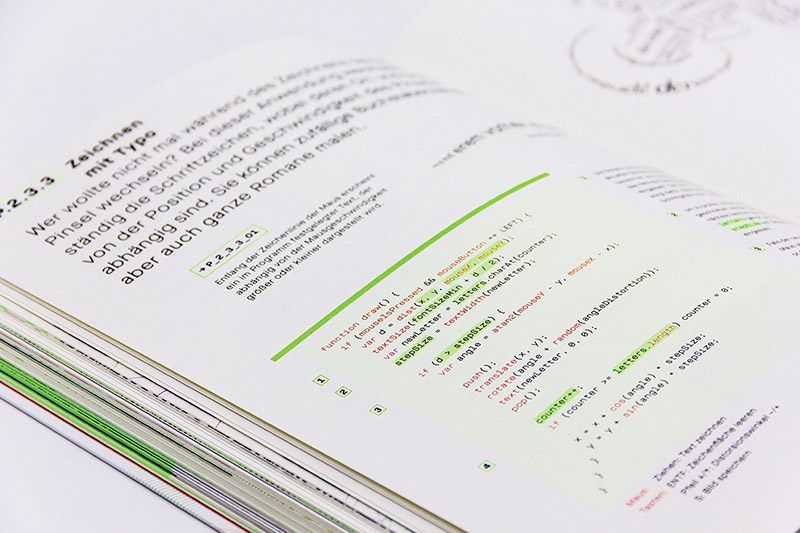 P.2.3.3 Zeichnen
mit Typo
Wer wollte nicht mal während des Zeichnens
Pinsel wechseln? Bei dieser Anwendung
ständig die Schriftzeichen, wobei deren
von der Position und Geschwindigkeit des
abhängig sind. Sie können zufällige
aber auch ganze Romane malen.
→P.2.3.3.01
Entlang der Zeichenlinie der Maus erscheint
ein im Programm festgelegter Text, der
abhängig von der Mausgeschwindigkeit
größer oder kleiner dargestellt wird.
function draw() {
if (mouseIsPressed && mouseButton == LEFT) {
var d = dist(x, y, mouseX, mouseY);
textSize(fontSizeMin + d / 2);
var newLetter = letters.charAt(counter);
stepSize = textWidth(newLetter);
if (d > stepSize) {
var angle = atan2(mouseY - y, mouseX - x);
push();
translate(x, y);
rotate(angle + random(angleDistortion));
text(newLetter, 0, 0);
pop();
counter++;
if (counter >= letters.length) counter = 0;
x = x + cos(angle) * stepSize;
y = y + sin(angle) * stepSize;
}
}
}
1
2
3
4
Maus: Ziehen: Text zeichnen
Tasten: ENTF: Zeichenfläche leeren
Pfeil ↑/↓: Distorsionswinkel -/+
S: Bild speichern